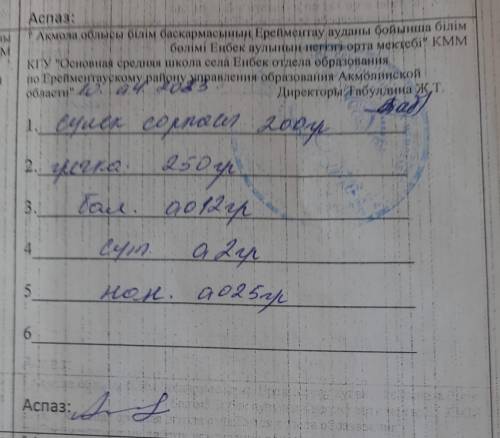 Аспаз:
" Ақмола облысы білім басқармасының Ерейментау ауданы бойынша білім
бөлімі Еңбек ауылының негізгі орта мектебі" КММ
КГУ "Основная средняя школа села Енбек отдела образования
по Ерейментаускому району управления образования Акмолинской
области" 10.04.2023 Директоры: Габуллина Ж.Т.
1. сүлек сорпасы 200гр
2. гречка. 250гр
3. бал. 0,012гр
4 сүт. 0,2гр
5 нан. 0,025гр
6
Аспаз: